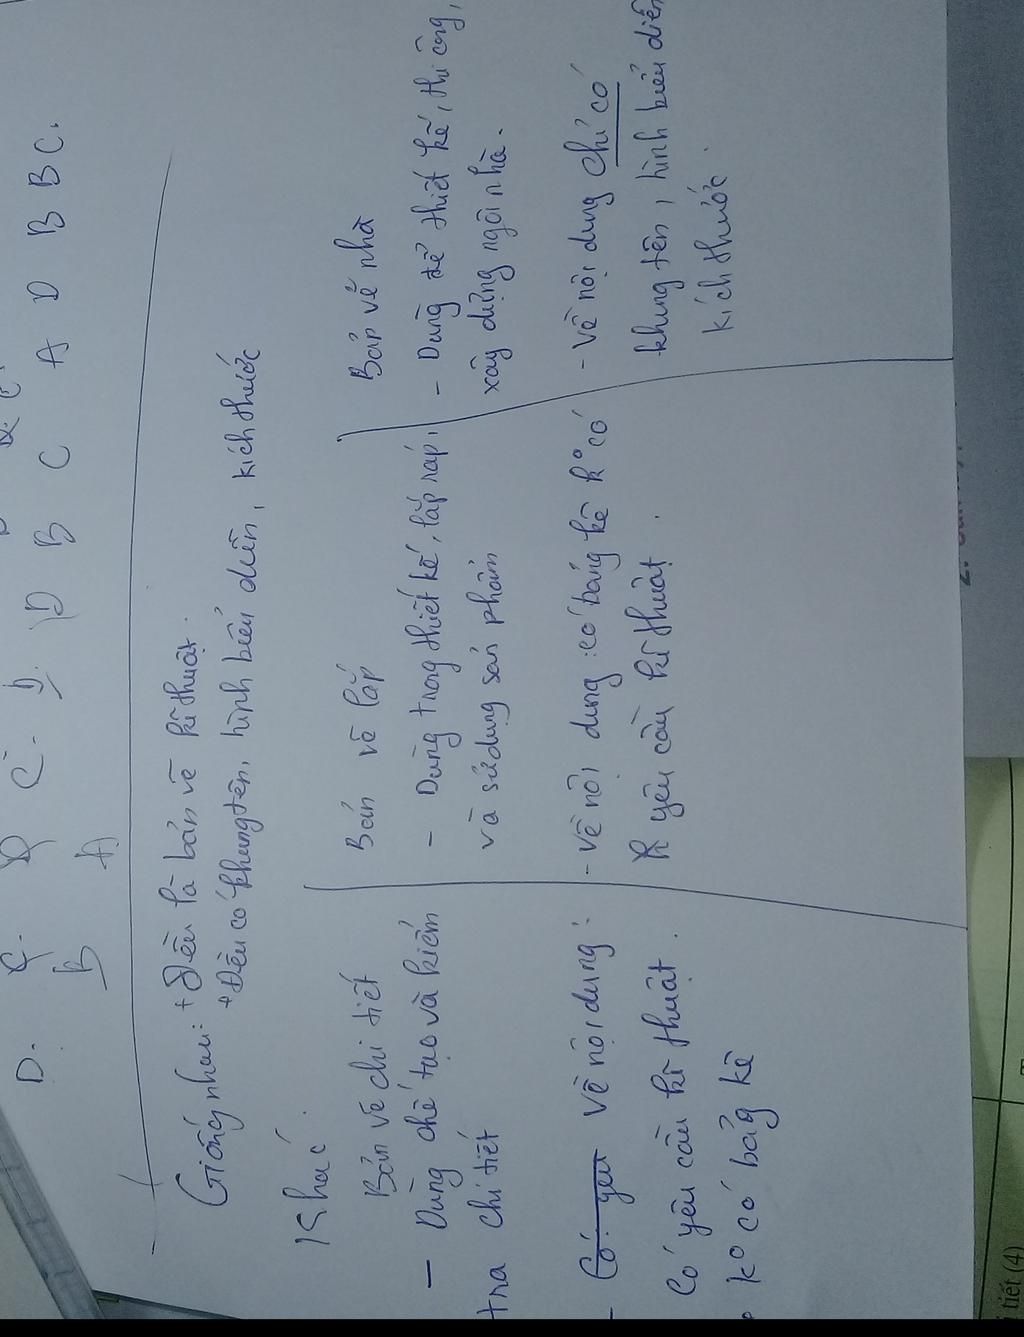 D. C. C. D. D B C A D B C.
B A
Giống nhau: + Đều là bản vẽ kĩ thuật.
+ Đều có khung tên, hình biểu diễn, kích thước
Khác.
Bản vẽ chi tiết
- Dùng chế tạo và kiểm
tra chi tiết
- Về nội dung:
Có yêu cầu kĩ thuật.
k° có bảg kê
Bản vẽ lắp
- Dùng trong thiết kế, lắp ráp,
và sử dụng sản phẩm
- Về nội dung: có bảng kê k° có
yêu cầu kĩ thuật.
Bản vẽ nhà
- Dùng để thiết kế, thi công,
xây dựng ngôi nhà.
- Về nội dung chỉ có
khung tên, hình biểu diễn
kích thước.
tiết (4)